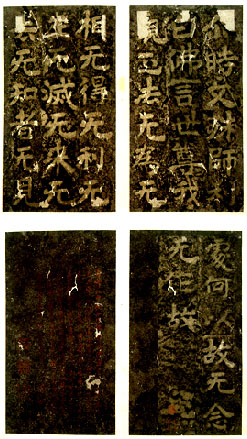 尒時文殊師利
白佛言世尊我
觀正法无為无
相无得无利无
生无滅无來无
去无知者无見
處何以故无念
无作故